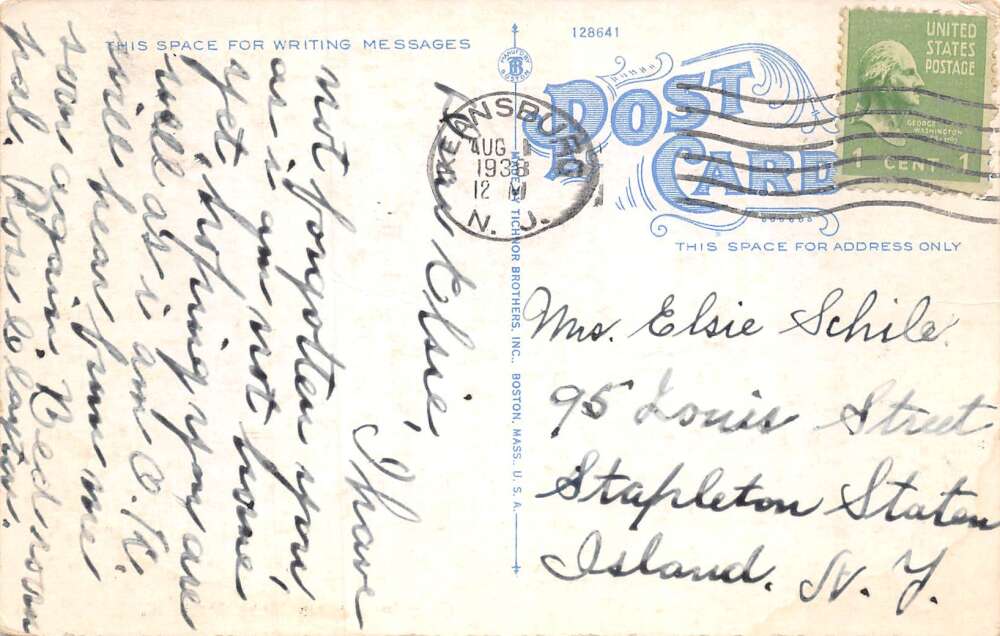 THIS SPACE FOR WRITING MESSAGES
Dear Elsie,
I have
not forgotten you,
as i am not home
yet, hoping you are
well as i am O.K.
will hear from me
soon again. Bed room
pal. Rose
MADE BY TICHNOR BROTHERS, INC., BOSTON, MASS., U. S. A.
128641
POST CARD
THIS SPACE FOR ADDRESS ONLY
KEANSBURG
AUG
1938
12
N. J.
UNITED
STATES
POSTAGE
GEORGE
WASHINGTON
1 CENT 1
Mrs. Elsie Schile.
95 Louis Street
Stapleton Staten
Island. N. Y.